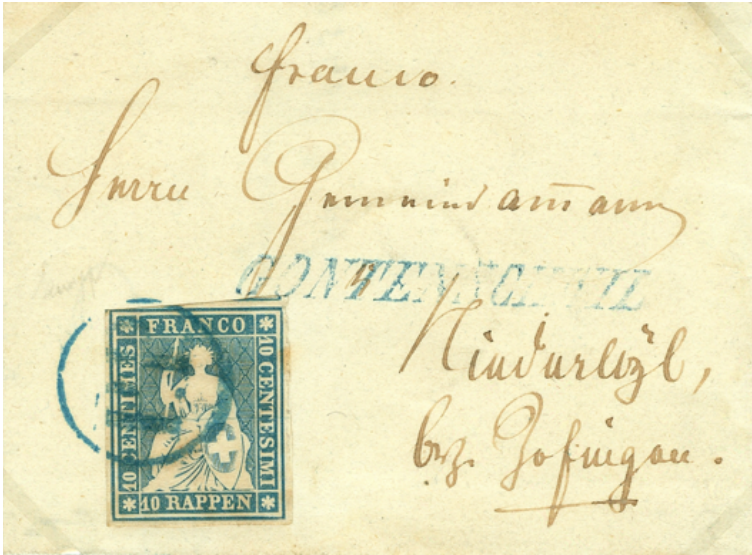 franco.
Herrn Gemeindam̄ann
GONTENSCHWIL
Niederwÿl,
bz. Zofingen.
FRANCO
10 CENTIMES
10 CENTESIMI
10 RAPPEN